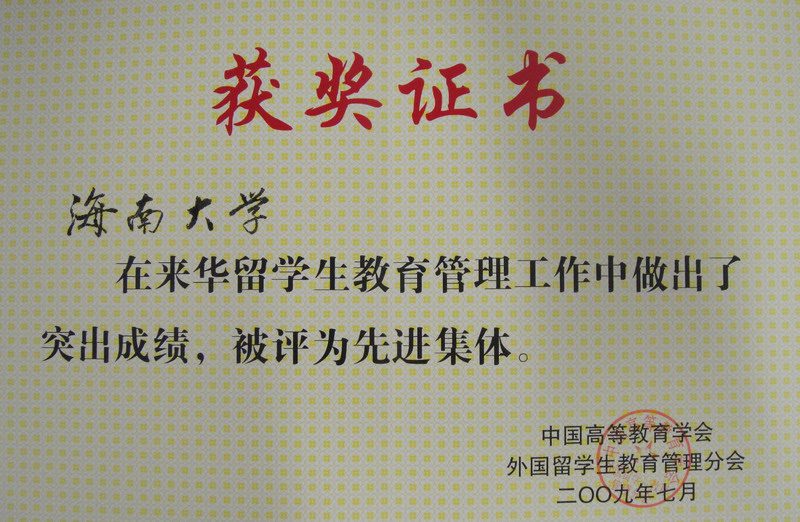 获奖证书
海南大学
在来华留学生教育管理工作中做出了
突出成绩，被评为先进集体。
中国高等教育学会
外国留学生教育管理分会
二〇〇九年七月